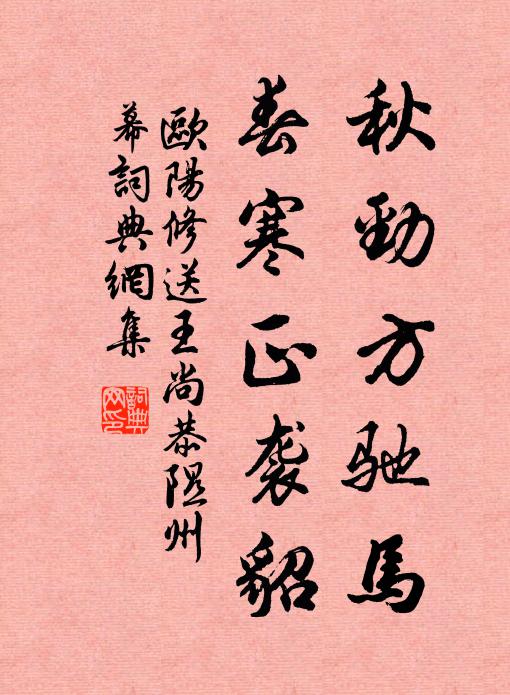 秋勁方馳馬
春寒正襲貂
歐陽修送王尚恭隰州
幕詞典網集
詞典
网印